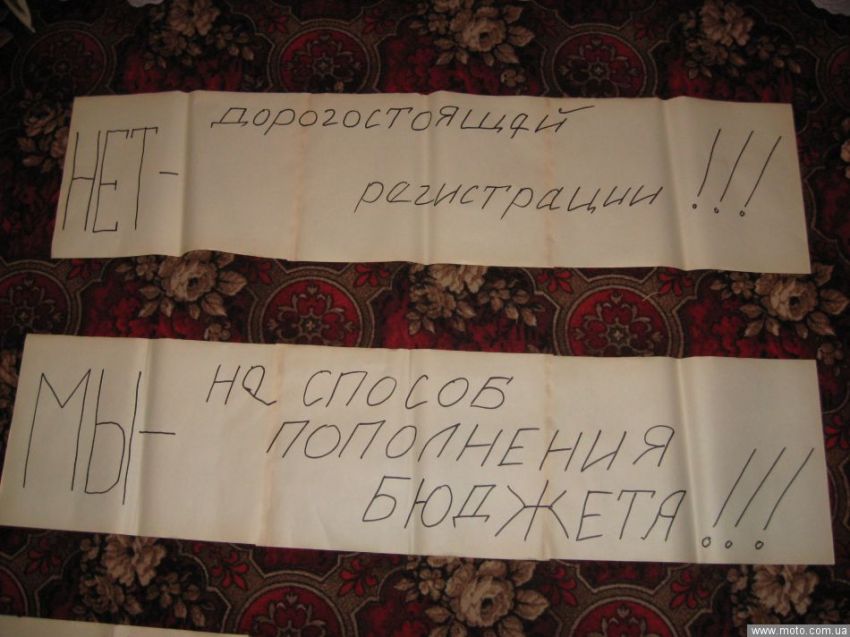 НЕТ- дорогостоящей
регистрации !!!
МЫ- на СПОСОБ
ПОПОЛНЕНИЯ
БЮДЖЕТА !!!
www.moto.com.ua